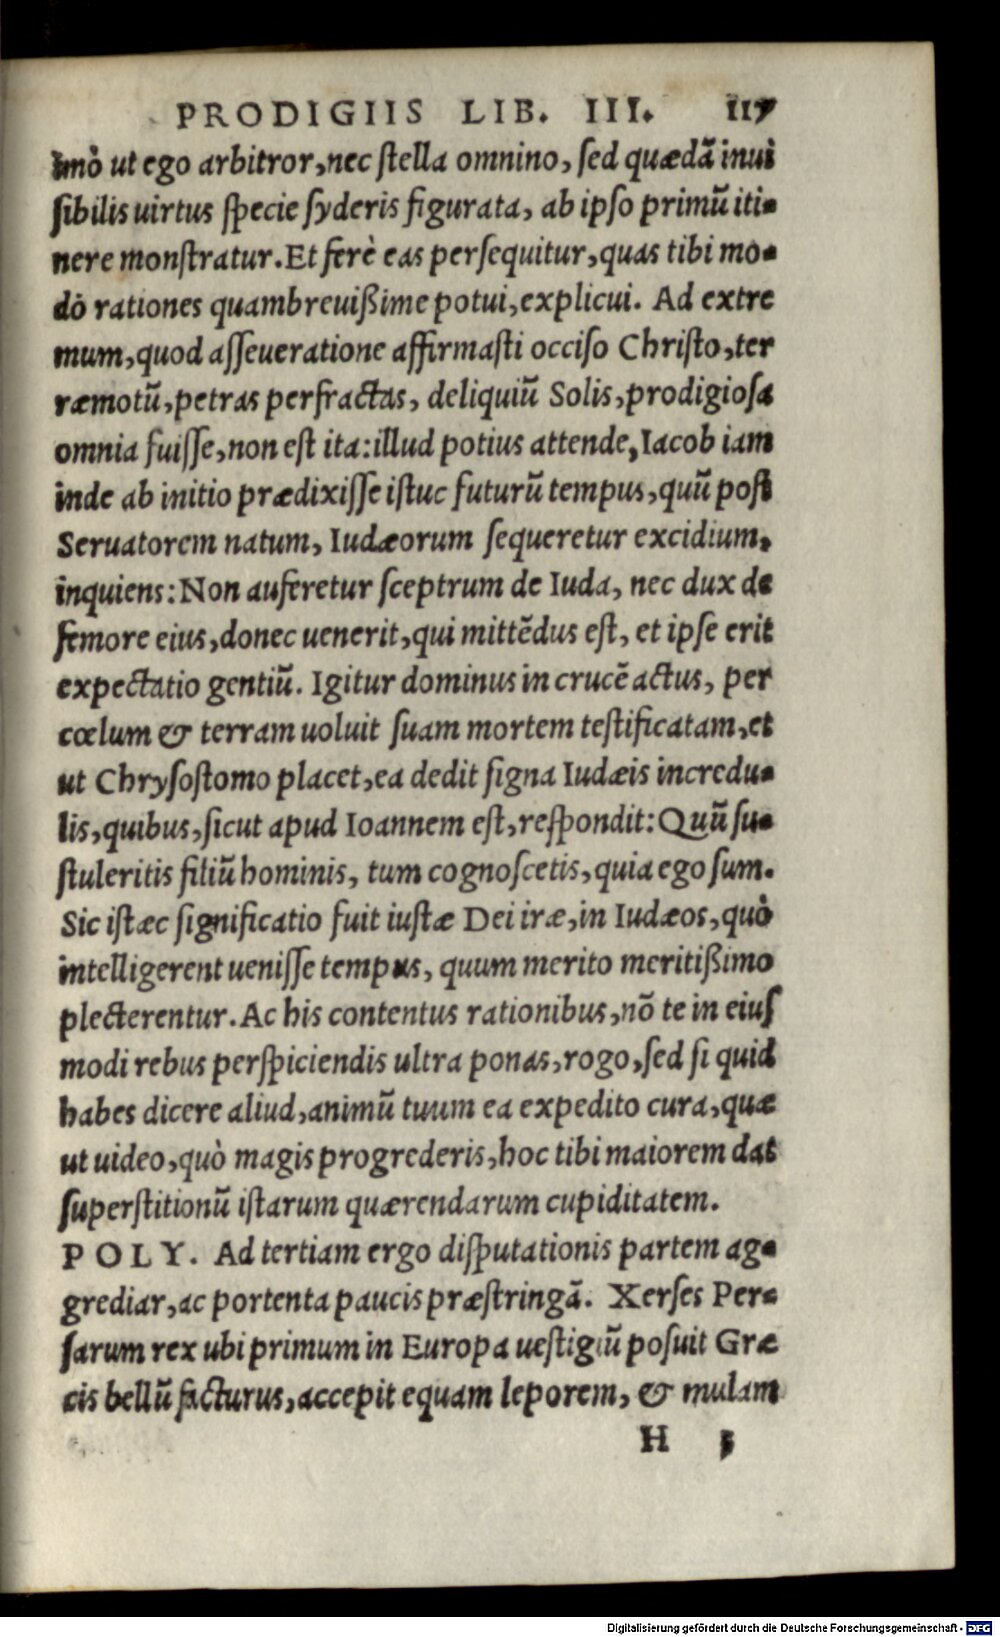 PRODIGIIS LIB. III. 117
imò ut ego arbitror, nec stella omnino, sed quædā inui
sibilis uirtus specie syderis figurata, ab ipso primū iti-
nere monstratur. Et ferè eas persequitur, quas tibi mo-
dò rationes quambreuißime potui, explicui. Ad extre
mum, quod asseueratione affirmasti occiso Christo, ter
ræmotū, petras perfractas, deliquiū Solis, prodigiosa
omnia fuisse, non est ita: illud potius attende, Iacob iam
inde ab initio prædixisse istuc futurū tempus, quū post
Seruatorem natum, Iudæorum sequeretur excidium,
inquiens: Non auferetur sceptrum de Iuda, nec dux de
femore eius, donec uenerit, qui mittēdus est, et ipse erit
expectatio gentiū. Igitur dominus in crucē actus, per
cœlum & terram uoluit suam mortem testificatam, et
ut Chrysostomo placet, ea dedit signa Iudæis incredu-
lis, quibus, sicut apud Ioannem est, respondit: Quū su-
stuleritis filiū hominis, tum cognoscetis, quia ego sum.
Sic istæc significatio fuit iustæ Dei iræ, in Iudæos, quò
intelligerent uenisse tempus, quum merito meritißimo
plecterentur. Ac his contentus rationibus, nō te in eius
modi rebus perspiciendis ultra ponas, rogo, sed si quid
habes dicere aliud, animū tuum ea expedito cura, quæ
ut uideo, quò magis progrederis, hoc tibi maiorem dat
superstitionū istarum quærendarum cupiditatem.
POLY. Ad tertiam ergo disputationis partem ag-
grediar, ac portenta paucis præstringā. Xerses Per-
sarum rex ubi primum in Europa uestigiū posuit Græ
cis bellū facturus, accepit equam leporem, & mulam
H 3
Digitalisierung gefördert durch die Deutsche Forschungsgemeinschaft - DFG